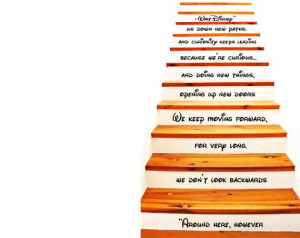 "Around here, however
we don't look backwards
for very long.
We keep moving forward,
opening up new doors
and doing new things,
because we're curious...
and curiosity keeps leading
us down new paths.
-Walt Disney"